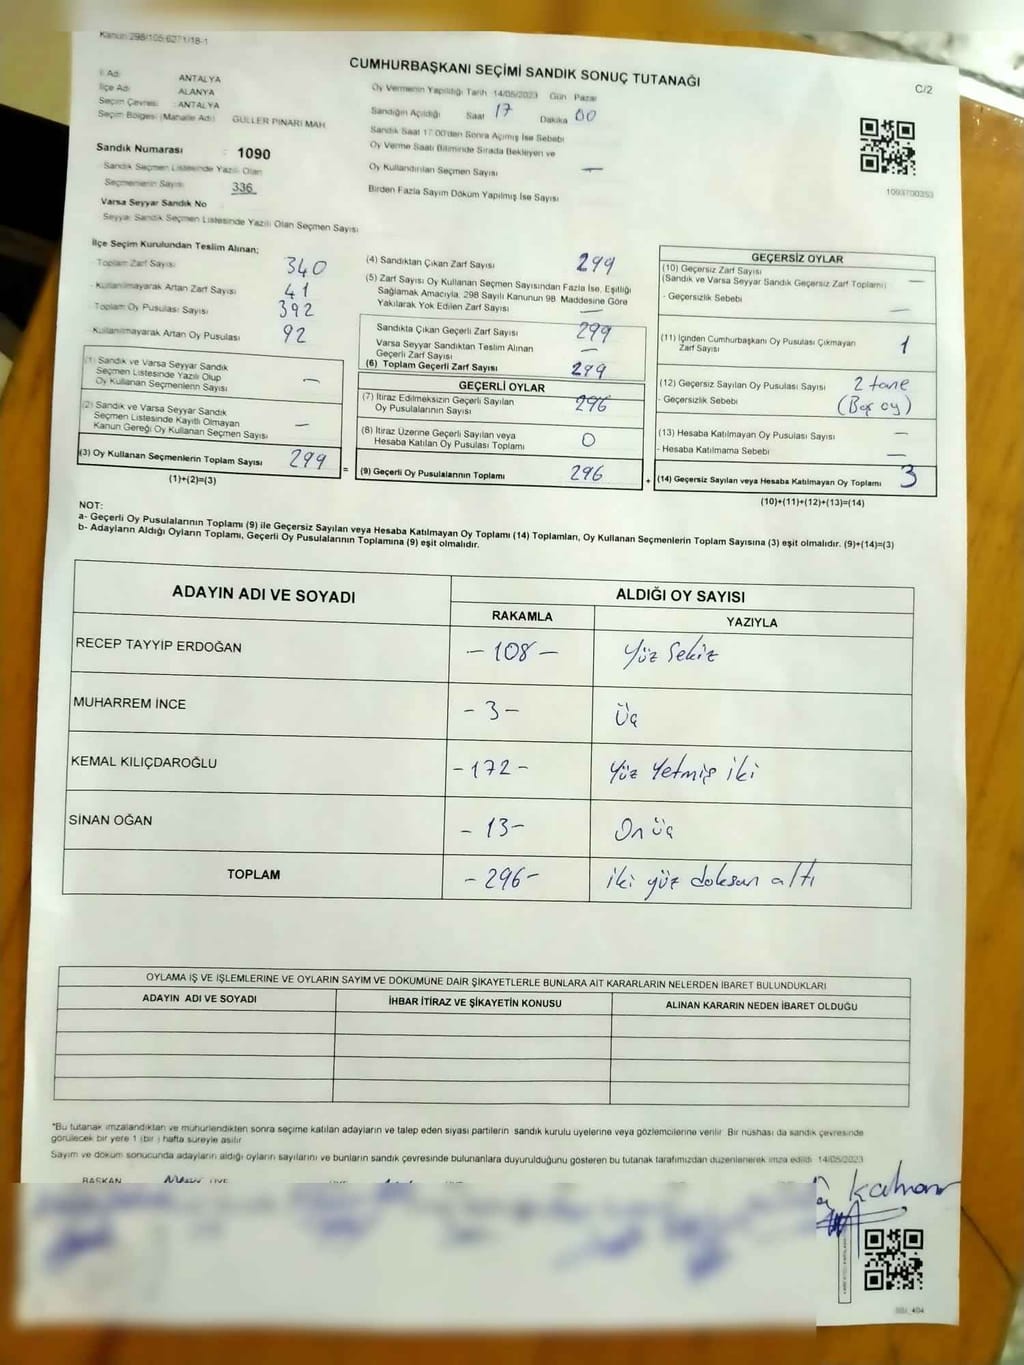 Kanun 298/105-6271/18-1
CUMHURBAŞKANI SEÇİMİ SANDIK SONUÇ TUTANAĞI
C/2
İl Adı ANTALYA
İlçe Adı ALANYA
Seçim Çevresi : ANTALYA
Seçim Bölgesi (Mahalle Adı) GÜLLER PINARI MAH
Sandık Numarası : 1090
Sandık Seçmen Listesinde Yazılı Olan
Seçmenlerin Sayısı 336
Varsa Seyyar Sandık No
Seyyar Sandık Seçmen Listesinde Yazılı Olan Seçmen Sayısı
Oy Vermenin Yapıldığı Tarih 14/05/2023 Gün Pazar
Sandığın Açıldığı Saat 17 Dakika 00
Sandık Saat 17.00'den Sonra Açılmış İse Sebebi
Oy Verme Saati Bitiminde Sırada Bekleyen ve
Oy Kullandırılan Seçmen Sayısı —
Birden Fazla Sayım Döküm Yapılmış İse Sayısı
1093700353
İlçe Seçim Kurulundan Teslim Alınan;
Toplam Zarf Sayısı 340
Kullanılmayarak Artan Zarf Sayısı 41
Toplam Oy Pusulası Sayısı 392
Kullanılmayarak Artan Oy Pusulası 92
(1) Sandık ve Varsa Seyyar Sandık
Seçmen Listesinde Yazılı Olup
Oy Kullanan Seçmenlerin Sayısı —
(2) Sandık ve Varsa Seyyar Sandık
Seçmen Listesinde Kayıtlı Olmayan
Kanun Gereği Oy Kullanan Seçmen Sayısı —
(3) Oy Kullanan Seçmenlerin Toplam Sayısı 299
(1)+(2)=(3)
(4) Sandıktan Çıkan Zarf Sayısı 299
(5) Zarf Sayısı Oy Kullanan Seçmen Sayısından Fazla İse, Eşitliği
Sağlamak Amacıyla, 298 Sayılı Kanunun 98. Maddesine Göre
Yakılarak Yok Edilen Zarf Sayısı —
Sandıkta Çıkan Geçerli Zarf Sayısı 299
Varsa Seyyar Sandıktan Teslim Alınan
Geçerli Zarf Sayısı —
(6) Toplam Geçerli Zarf Sayısı 299
GEÇERLİ OYLAR
(7) İtiraz Edilmeksizin Geçerli Sayılan
Oy Pusulalarının Sayısı 296
(8) İtiraz Üzerine Geçerli Sayılan veya
Hesaba Katılan Oy Pusulası Toplamı 0
= (9) Geçerli Oy Pusulalarının Toplamı 296
GEÇERSİZ OYLAR
(10) Geçersiz Zarf Sayısı
(Sandık ve Varsa Seyyar Sandık Geçersiz Zarf Toplamı) —
- Geçersizlik Sebebi —
(11) İçinden Cumhurbaşkanı Oy Pusulası Çıkmayan
Zarf Sayısı 1
(12) Geçersiz Sayılan Oy Pusulası Sayısı 2 tane
- Geçersizlik Sebebi (Boş oy)
(13) Hesaba Katılmayan Oy Pusulası Sayısı —
- Hesaba Katılmama Sebebi —
+ (14) Geçersiz Sayılan veya Hesaba Katılmayan Oy Toplamı 3
(10)+(11)+(12)+(13)=(14)
NOT:
a- Geçerli Oy Pusulalarının Toplamı (9) ile Geçersiz Sayılan veya Hesaba Katılmayan Oy Toplamı (14) Toplamları, Oy Kullanan Seçmenlerin Toplam Sayısına (3) eşit olmalıdır. (9)+(14)=(3)
b- Adayların Aldığı Oyların Toplamı, Geçerli Oy Pusulalarının Toplamına (9) eşit olmalıdır.
ADAYIN ADI VE SOYADI ALDIĞI OY SAYISI
RAKAMLA YAZIYLA
RECEP TAYYİP ERDOĞAN - 108 - Yüz Sekiz
MUHARREM İNCE - 3 - Üç
KEMAL KILIÇDAROĞLU - 172 - Yüz Yetmiş iki
SİNAN OĞAN - 13 - On üç
TOPLAM - 296 - iki yüz doksan altı
OYLAMA İŞ VE İŞLEMLERİNE VE OYLARIN SAYIM VE DÖKÜMÜNE DAİR ŞİKAYETLERLE BUNLARA AİT KARARLARIN NELERDEN İBARET BULUNDUKLARI
ADAYIN ADI VE SOYADI İHBAR İTİRAZ VE ŞİKAYETİN KONUSU ALINAN KARARIN NEDEN İBARET OLDUĞU
*Bu tutanak imzalandıktan ve mühürlendikten sonra seçime katılan adayların ve talep eden siyasi partilerin sandık kurulu üyelerine veya gözlemcilerine verilir. Bir nüshası da sandık çevresinde
görülecek bir yere 1 (bir) hafta süreyle asılır
Sayım ve döküm sonucunda adayların aldığı oyların sayılarını ve bunların sandık çevresinde bulunanlara duyurulduğunu gösteren bu tutanak tarafımızdan düzenlenerek imza edildi. 14/05/2023
BAŞKAN
Kahraman